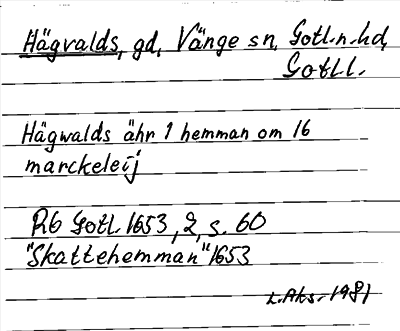 Hägvalds, gd, Vänge sn, Gotl.n.hd,
Gotl l.
Hägwalds ähr 1 hemman om 16
marckeleij
Rb Gotl. 1653, 2, s. 60
"Skattehemman" 1653
L.Aks. 1981